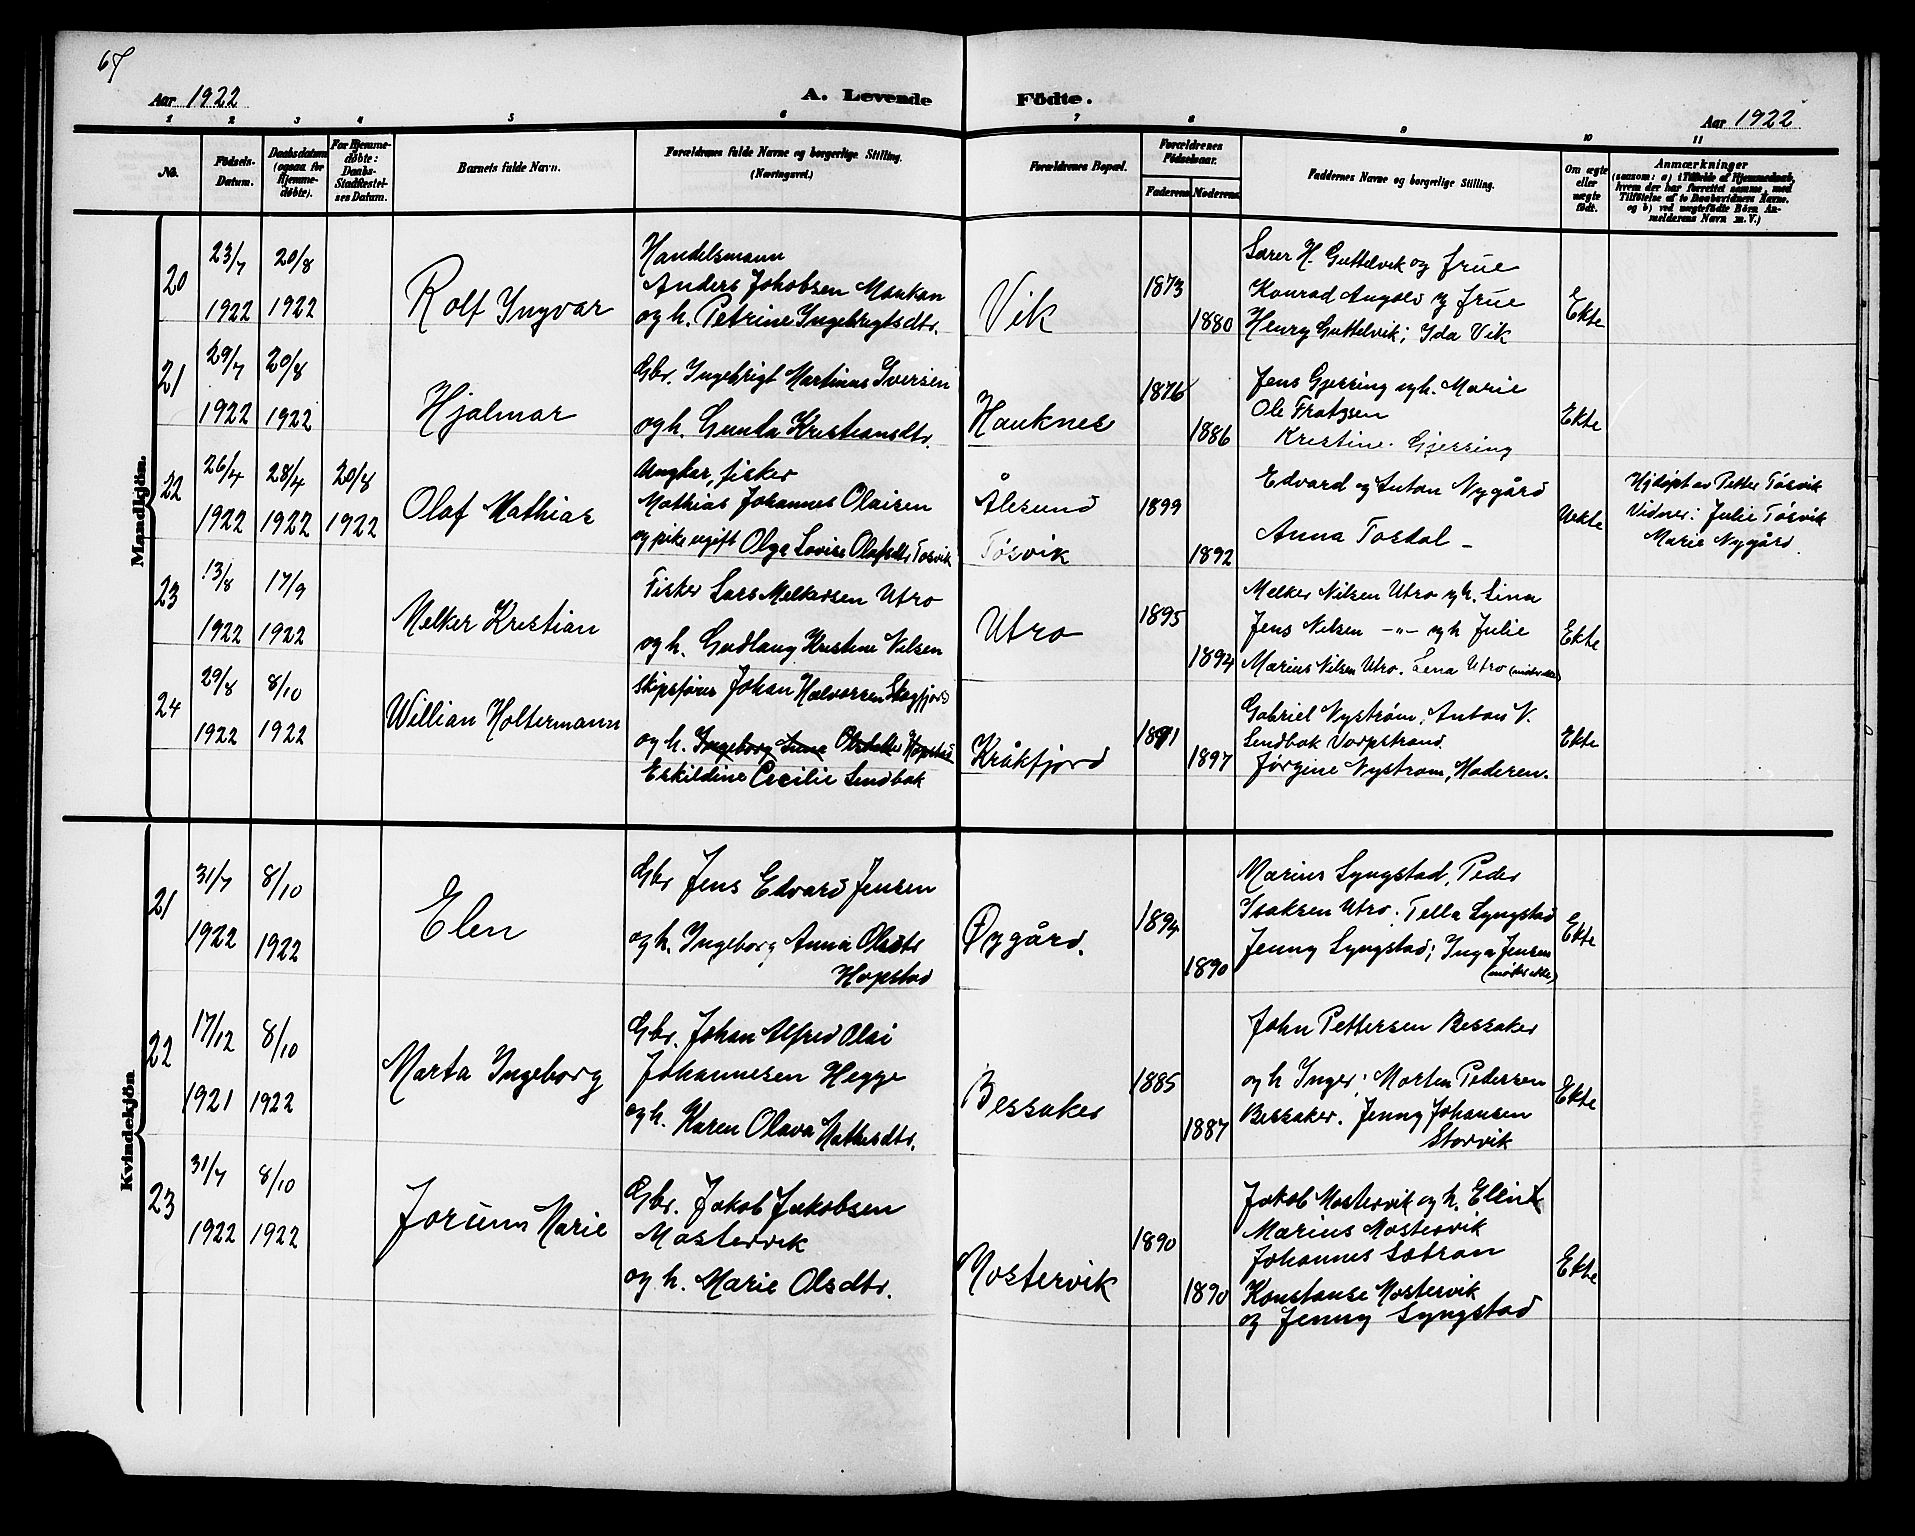 67
Aar 1922
A. Levende Födte.
Aar 1922
1 2 3 4 5 6 7 8 9 10 11
No.
Födsels-
Datum.
Daabsdatum
(ogsaa for
Hjemme-
döbte).
For Hjemme-
döbte:
Daabs-
Stadfæstel-
ses Datum.
Barnets fulde Navn.
Forældrenes fulde Navne og borgerlige Stilling.
(Næringsvei.)
Forældrenes Bopæl.
Forældrenes
Födselsaar.
Faderens Moderens
Faddernes Navne og borgerlige Stilling.
Om ægte
eller
uægte
födt.
Anmærkninger
(saasom: a) i Tilfælde af Hjemmedaab,
hvem der har forrettet samme, med
Tilföielse af to Daabsvidners Navne.
og b) ved uægtefödte Börn An-
melderens Navn m. V.)
Mandkjön.
20
23/7
1922
20/8
1922
Rolf Ingvar
Handelsmann
Anders Jakobsen Maukan
og h. Petrine Ingebrigtsdtr.
Vik
1873
1880
Lærer H. Guttelvik og frue
Konrad Angols og frue
Henry Guttelvik; Ida Vik
Ekte
21
29/7
1922
20/8
1922
Hjalmar
Gbr. Ingebrigt Martinus Iversen
og h. Gunda Kristiansdtr.
Hauknes
1876
1886
Jens Gjersing og h. Marie
Ole Fratzsen
Kristine Gjersing
Ekte
22
26/4
1922
28/4
1922
20/8
1922
Olaf Mathias
Ungkar, fisker
Mathias Johannes Olaisen
og pike ugift Olga Lovise Olafsdtr Tøsvik
Ålesund
Tøsvik
1899
1892
Edvard og Anton Nygård
Anna Tostal -
Uekte
Hjdøpt av Petter Tøsvik
Vidner: Julie Tøsvik
Marie Nygård.
23
13/8
1922
17/9
1922
Melker Kristian
Fisker Lars Melkersen Utro
og h. Gudlaug Kristine Nilsen
Utro
1895
1894
Melker Nilsen Utro og h. Lina
Jens Nilsen -"- og h Julie
Marius Nilsen Utro. Lena Utro (møtte ikke)
Ekte
24
29/8
1922
8/10
1922
Willian Holtermann
Skipsfører Johan Halvorsen Skogfjord
og h. Ingeborg Anna Olsdatter Hopstad
Eskildine Cecilie Sendbak
Kråkfjord
1891
1897
Gabriel Nystrøm, Anton N.
Sendbak Vorpstrand.
Jørgine Nystrøm, Moderen.
Ekte
Kvindekjön
21
31/7
1922
8/10
1922
Elen
Gbr Jens Edvard Jensen
og h. Ingeborg Anna Olsdtr
Hopstad
Øygård.
1894
1890
Marius Lyngstad, Peder
Isaksen Utro. Tella Lyngstad
Jenny Lyngstad; Inga Jensen
(møtte ikke)
Ekte
22
17/12
1921
8/10
1922
Marta Ingeborg
Gbr. Johan Alfred Olai
Johannesen Hegge
og h. Karen Olava Mathisdtr.
Bessaker
1885
1887
John Pettersen Bessaker
og h Inger; Morten Pedersen
Bessaker. Jenny Johansen
Storvik
Ekte
23
31/7
1922
8/10
1922
Jorunn Marie
Gbr. Jakob Jakobsen
Mostervik
og h. Marie Olsdtr.
Mostervik
1890
1890
Jakob Mostervik og h. Elen
Marius Mostervik
Johannes Sætran
Konstanse Mostervik
og Jenny Lyngstad
Ekte